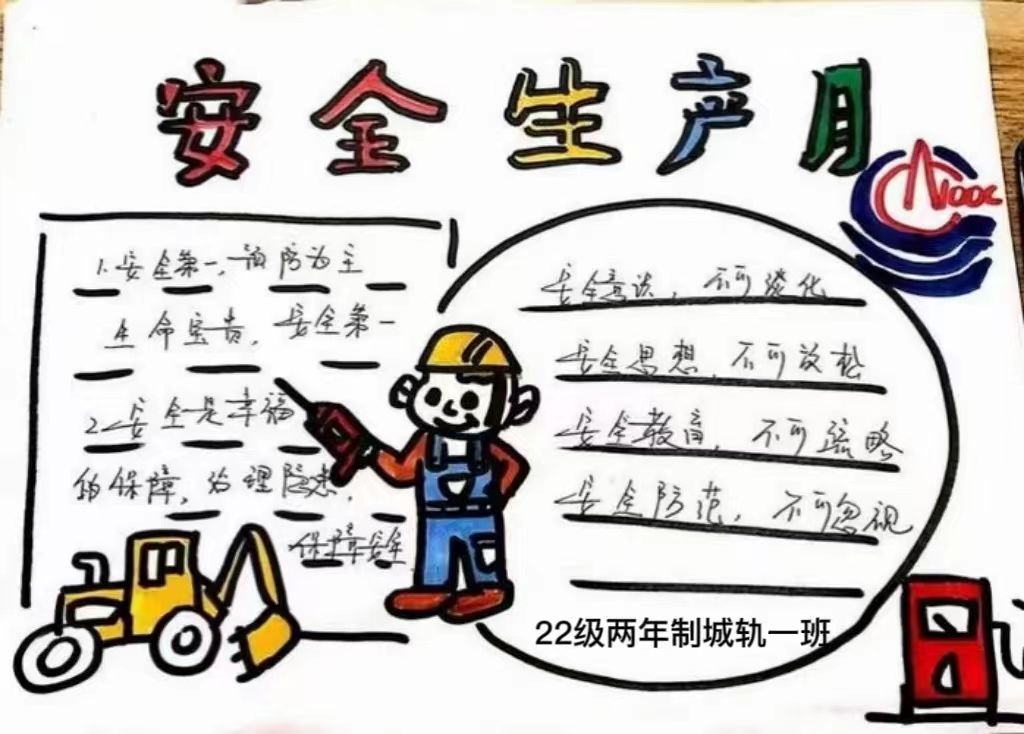 安全生产月
CNOOC
1.安全第一,预防为主
生命宝贵,安全第一
2.安全是幸福
的保障,治理隐患,
保障安全
安全意识,不可淡化
安全思想,不可放松
安全教育,不可疏略
安全防范,不可忽视
22级两年制城轨一班